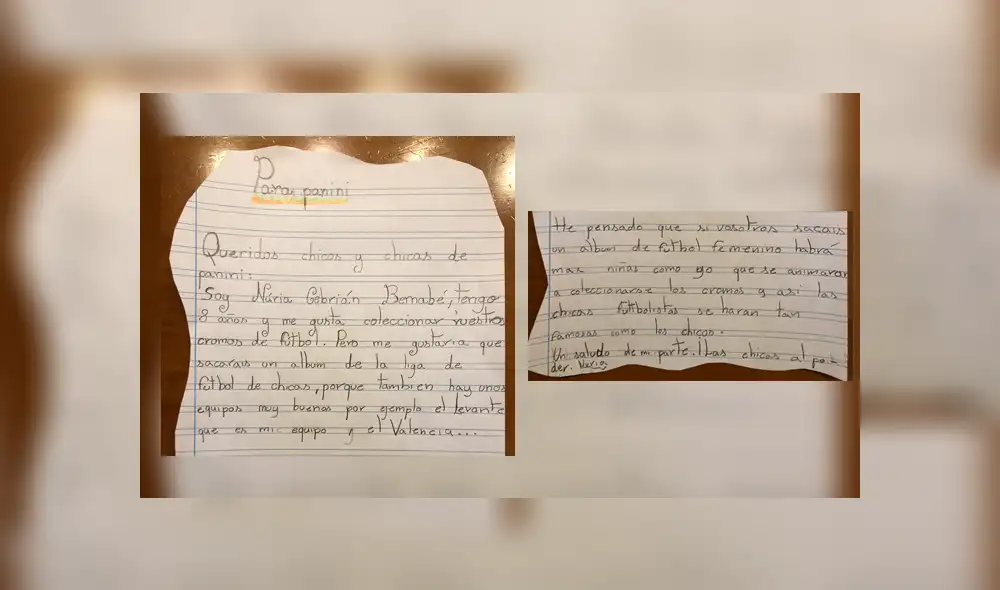 Para panini
Queridos chicos y chicas de
panini:
Soy Núria Cebrián Bernabé, tengo
8 años y me gusta coleccionar vuestros
cromos de fútbol. Pero me gustaria que
sacarais un album de la liga de
fútbol de chicas, porque tambien hay unos
equipos muy buenos por ejemplo el levante
que es mi equipo y el Valencia...
He pensado que si vosotros sacais
un álbum de fútbol femenino habrá
mas niñas como yo que se animaran
a coleccionarse los cromos y asi las
chicas futbolistas se haran tan
famosas como los chicos.
Un saludo de mi parte. ¡Las chicas al po-
der. Núria